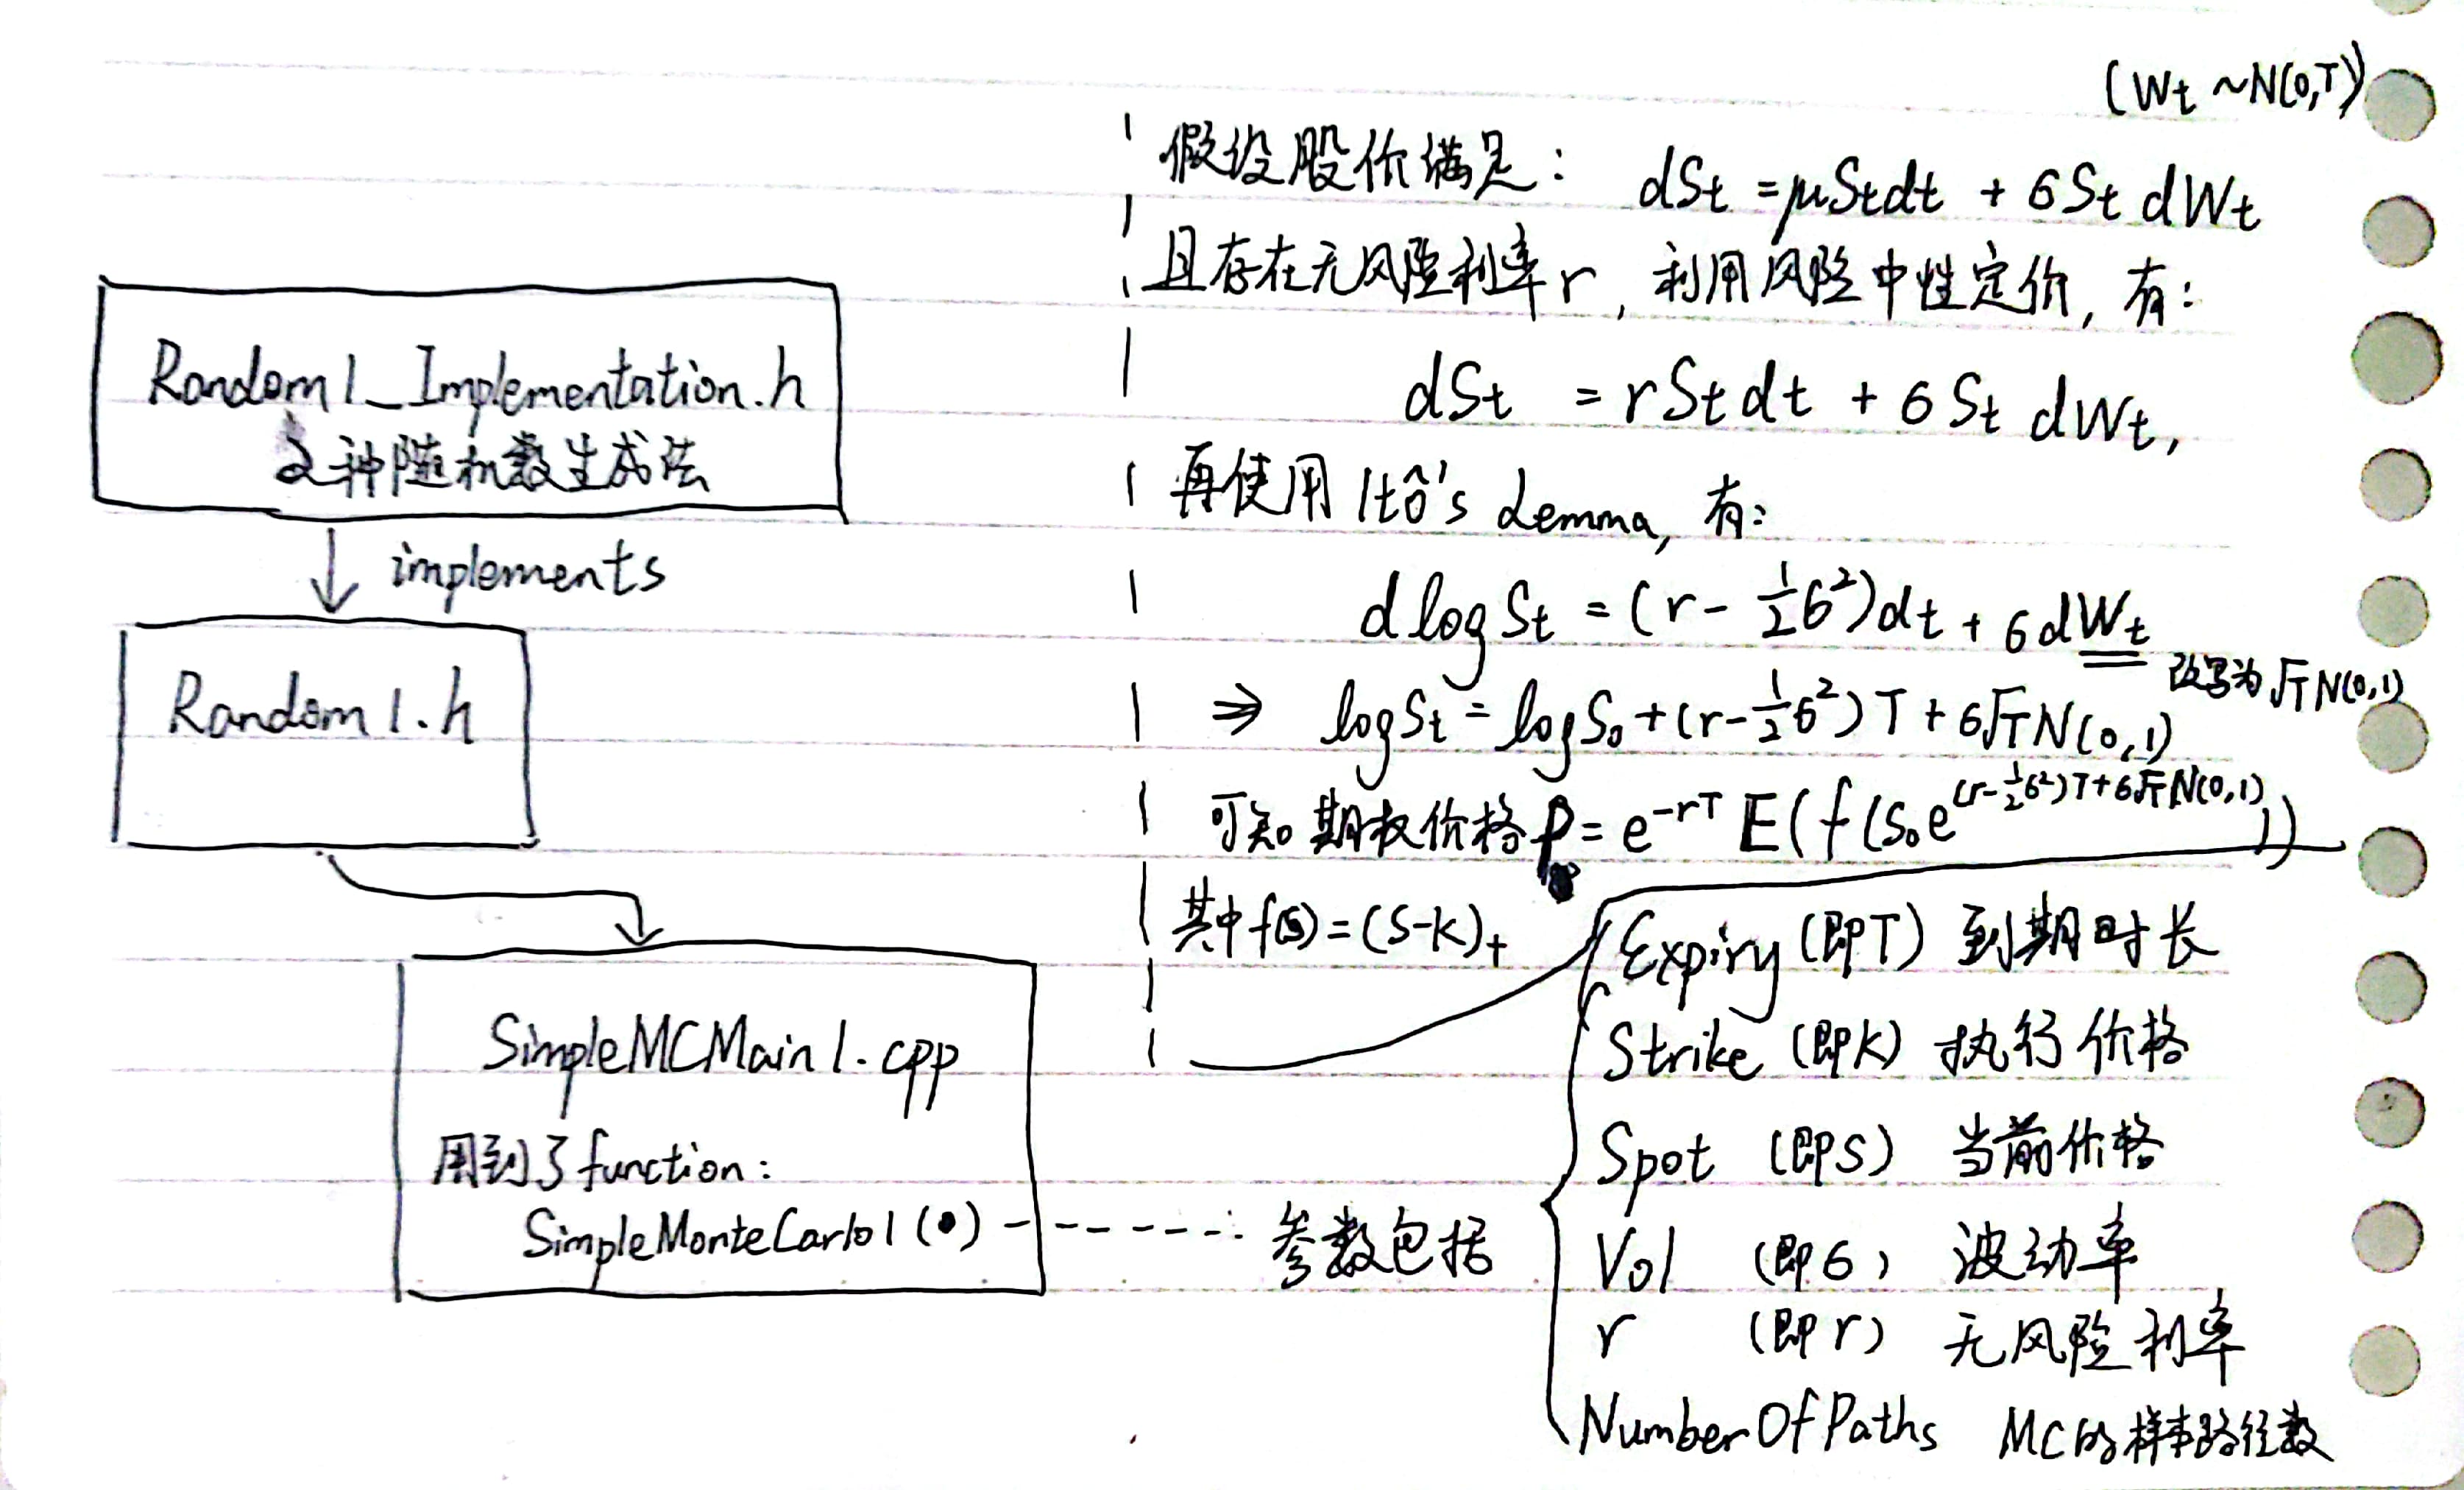 Random1_Implementation.h
2种随机数生成法
implements
Random1.h
SimpleMCMain1.cpp
用到了function:
SimpleMonteCarlo1(•)
(Wt ~N(0,T))
假设股价满足: dSt = μStdt + σSt dWt
且存在无风险利率r, 利用风险中性定价, 有:
dSt = rSt dt + σSt dWt,
再使用 Itô's Lemma, 有:
d log St = (r - ½σ²)dt + σdWt
改写为 √T N(0,1)
⇒ log St = log S₀ + (r-½σ²)T + σ√T N(0,1)
可知 期权价格 P = e^{-rT} E(f(S₀e^{(r-½σ²)T+σ√T N(0,1)}))
其中f(S) = (S-K)₊
参数包括
Expiry (即T) 到期时长
Strike (即K) 执行价格
Spot (即S) 当前价格
Vol (即σ) 波动率
r (即r) 无风险利率
NumberOfPaths MC的样本路径数